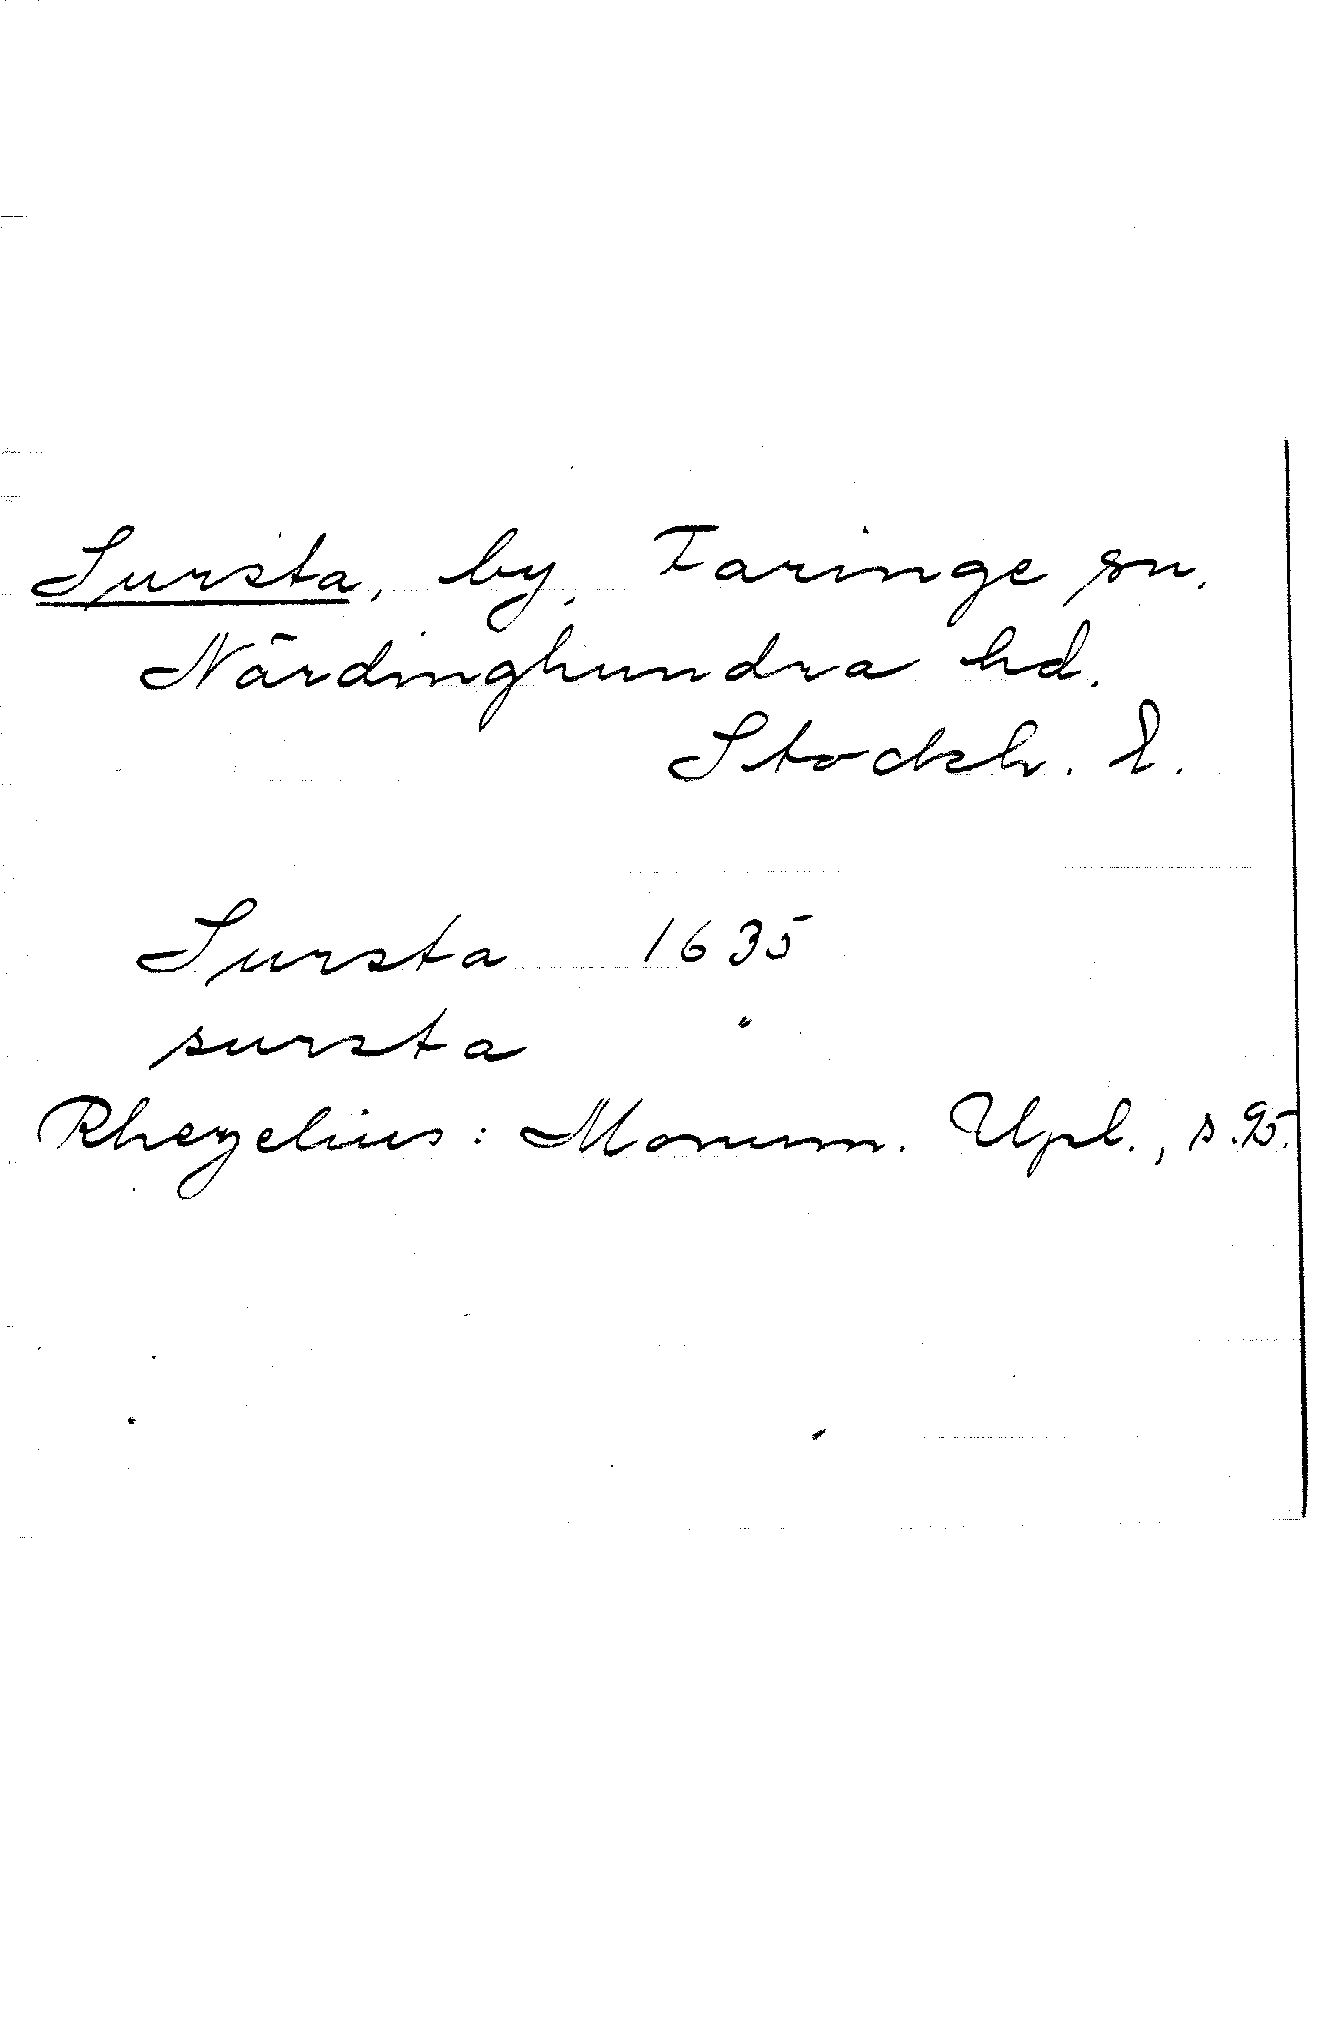 Sursta, by, Faringe sn.
Närdinghundra hd.
Stockh. l.
Sursta 1635
sursta "
Rhezelius: Monum. Upl., s. 95.